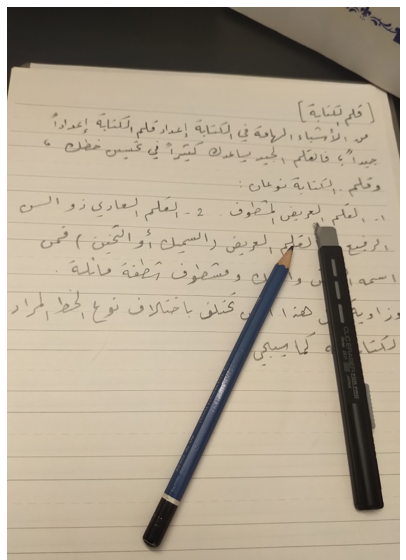 [قلم الكتابة]
من الأشياء الهامة في الكتابة إعداد قلم الكتابة إعداداً
جيداً، فالقلم الجيد يساعدك كثيراً في تحسين خطك،
وقلم الكتابة نوعان:
1. القلم العريض المشطوف. 2- القلم العادي ذو السن
الرفيع القلم العريض (السميك أو الثخين) فمن
اسمه ومشطوف شطفة مائلة.
وزاوية هذا تختلف باختلاف نوع الخط المراد
كما سيجي